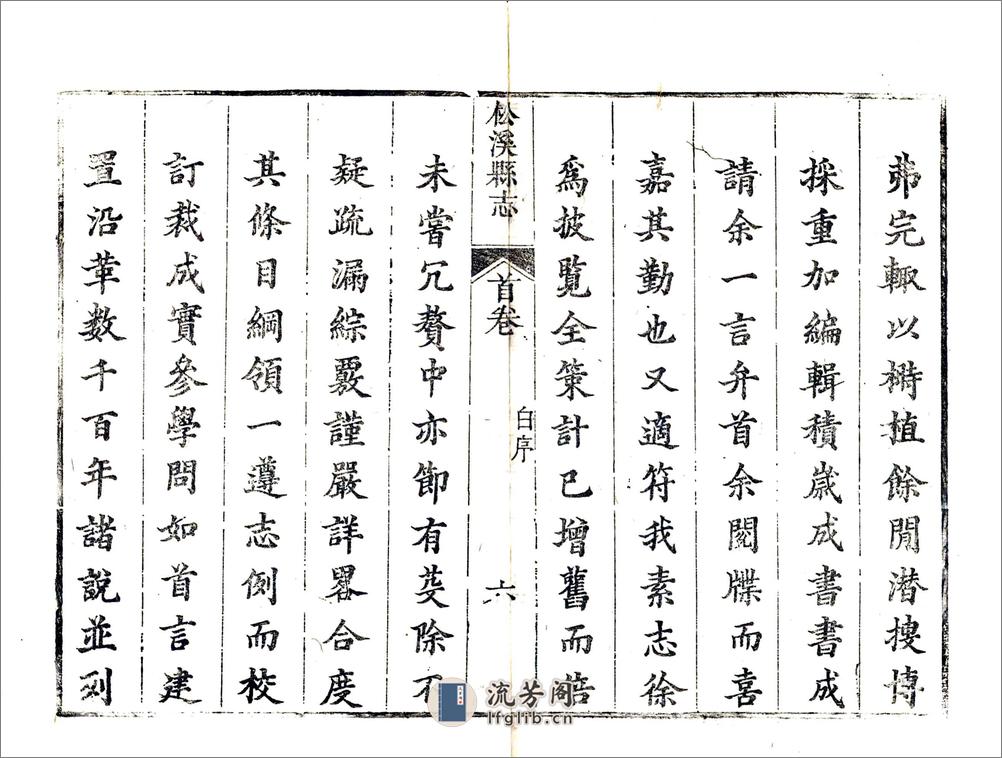 茀完輙以樹植餘閒潜搜博
採重加編輯積歲成書書成
請余一言弁首余閱牒而喜
嘉其勤也又適符我素志徐
爲披覽全策計已增舊而倍
松溪縣志
首卷
白序
六
未嘗冗贅中亦節有芟除不
疑疏漏綜覈謹嚴詳畧合度
其條目綱領一遵志例而校
訂裁成實參學問如首言建
置沿革數千百年諸說並列
流芳阁
lfglib.cn